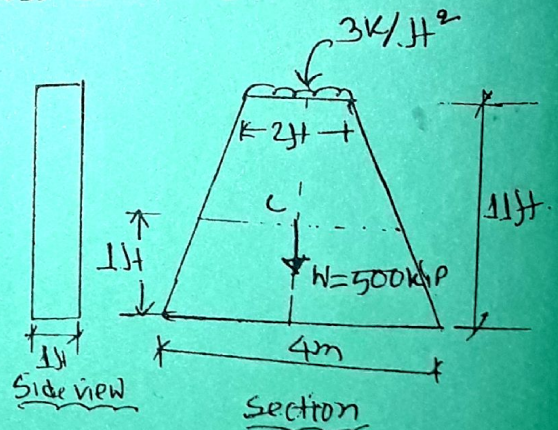 3K/ft²
2ft
11ft.
C
1ft
W=500Kip
4m
1ft
Side view
Section